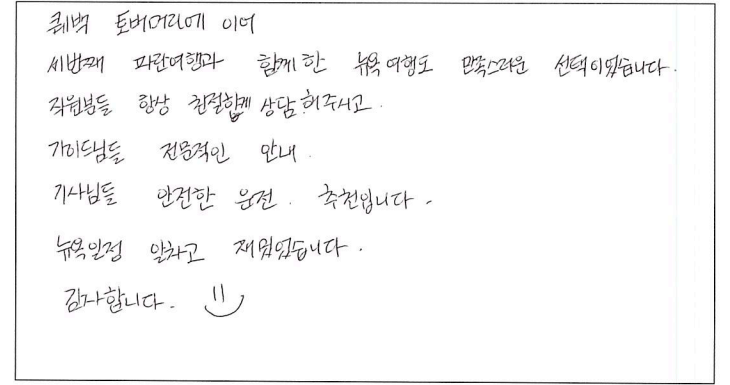 퀘백 토버머리에 이어
세번째 파란여행과 함께한 뉴욕여행도 만족스러운 선택이였습니다.
직원분들 항상 친절함께 상담해주시고.
가이드님들 전문적인 안내.
기사님들 안전한 운전. 추천입니다.
뉴욕일정 알차고 재밌었습니다.
감사합니다.